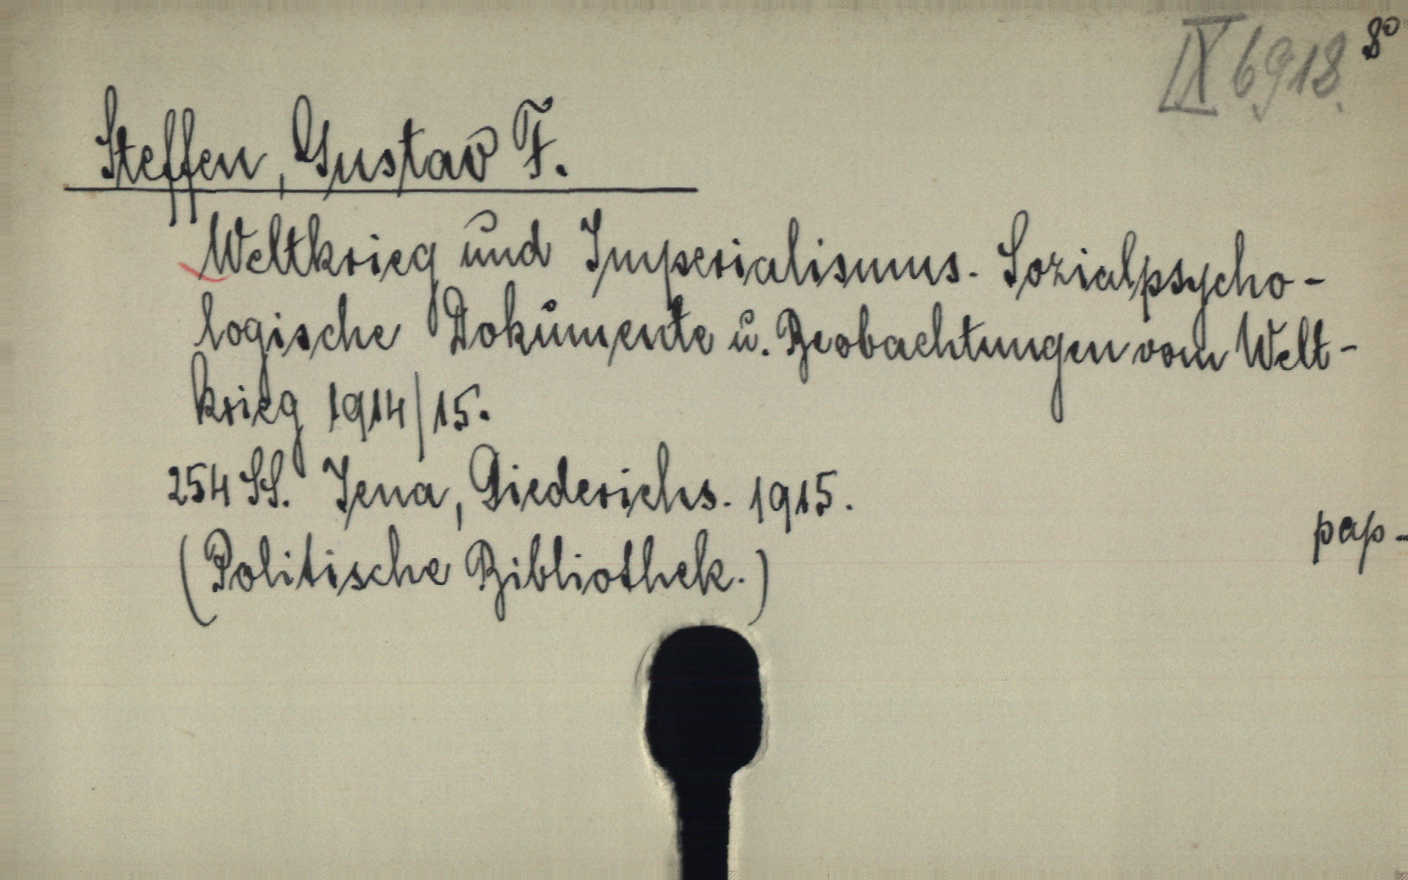 IX 6918. 8°
Steffen, Gustav F.
Weltkrieg und Imperialismus. Sozialpsycho-
logische Dokumente u. Beobachtungen vom Welt-
krieg 1914/15.
254 SS. Jena, Diederichs. 1915.
pap-
(Politische Bibliothek.)